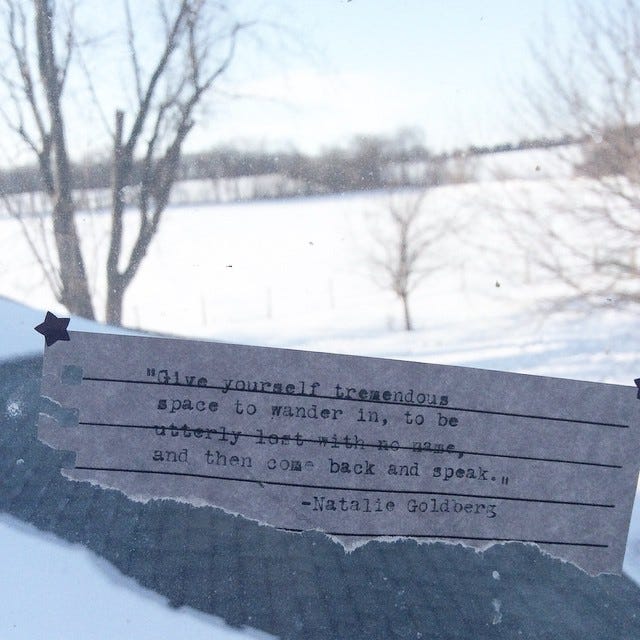 "Give yourself tremendous
space to wander in, to be
utterly lost with no name,
and then come back and speak."
-Natalie Goldberg